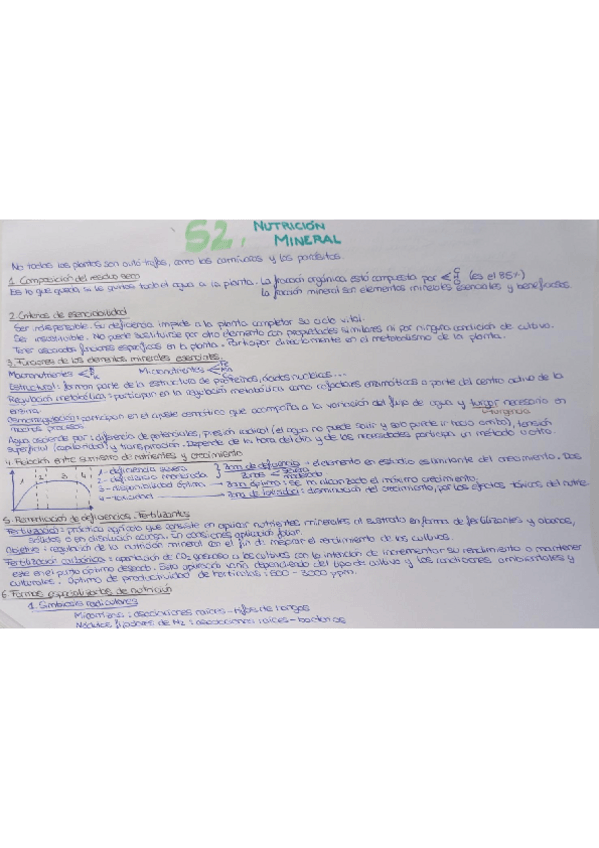 S2: NUTRICIÓN MINERAL
No todas las plantas son autótrofas, como las carnívoras y las parásitas.
1. Composición del residuo seco
Es lo que queda, si le quitas todo el agua a la planta. La fracción orgánica está compuesta por < C H O (es el 85%)
La fracción mineral son elementos minerales esenciales y beneficiosos.
2. Criterios de esencialidad
Ser indispensable. Su deficiencia impide a la planta completar su ciclo vital.
Ser insustituible. No puede sustituirse por otro elemento con propiedades similares ni por ninguna condición de cultivo.
Tener asociadas funciones específicas en la planta. Participar directamente en el metabolismo de la planta.
3. Funciones de los elementos minerales esenciales
Macronutrientes < Micronutrientes <
Estructural: forman parte de la estructura de proteínas, ácidos nucleicos...
Regulación metabólica: participan en la regulación metabólica como cofactores enzimáticos o parte del centro activo de la
enzima.
Osmorregulación: participan en el ajuste osmótico que acompaña a la variación del flujo de agua y turgor necesario en
muchos procesos. turgencia
Agua asciende por: diferencia de potenciales, presión radical (el agua no puede salir y solo puede ir hacia arriba), tensión
superficial (capilaridad) y transpiración. Depende de la hora del día y de las necesidades participa un método u otro.
4. Relación entre suministro de nutrientes y crecimiento
1 2 3 4
1- deficiencia severa
2- deficiencia moderada
3- disponibilidad óptima
4- toxicidad
Zona de deficiencia: elemento en estudio es limitante del crecimiento. Dos
zonas < severa moderada
Zona óptima: se ha alcanzado el máximo crecimiento.
Zona de toxicidad: disminución del crecimiento, por los efectos tóxicos del nutre.
5. Remediación de deficiencias. Fertilizantes
Fertilización: práctica agrícola que consiste en aportar nutrientes minerales al sustrato en forma de fertilizantes y abonos,
sólidos o en disolución acuosa. En ocasiones aplicación foliar.
Objetivo: regulación de la nutrición mineral con el fin de mejorar el rendimiento de los cultivos.
Fertilización carbónica: aportación de CO2 gaseoso a los cultivos con la intención de incrementar su rendimiento o mantener
este en el punto óptimo deseado. Esta aportación varía dependiendo del tipo de cultivo y las condiciones ambientales y
culturales. Óptimo de productividad de hortícolas: 600 - 3000 ppm.
6. Formas especializadas de nutrición
1. Simbiosis radiculares
Micorrizas: asociaciones raíces - hifas de hongos
Nódulos fijadores de N2: asociaciones raíces - bacterias